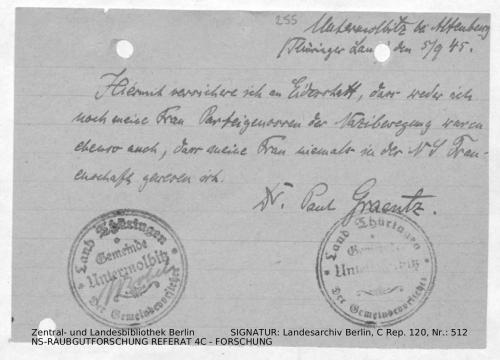 255
Untermolbitz bei Altenburg
(Thüringer Land den 5/9 45.
Hiermit versichere ich an Eidesstatt, dass weder ich
noch meine Frau Parteigenossen der Nazibewegung waren
ebenso auch, dass meine Frau niemals in der N S Frau-
enschaft gewesen ist.
Dr. Paul Graentz.
Land Thüringen
Gemeinde
Untermolbitz
Der Gemeindevorsteher
Land Thüringen
Gemeinde
Untermolbitz
Der Gemeindevorsteher
Zentral- und Landesbibliothek Berlin SIGNATUR: Landesarchiv Berlin, C Rep. 120, Nr.: 512
NS-RAUBGUTFORSCHUNG REFERAT 4C - FORSCHUNG